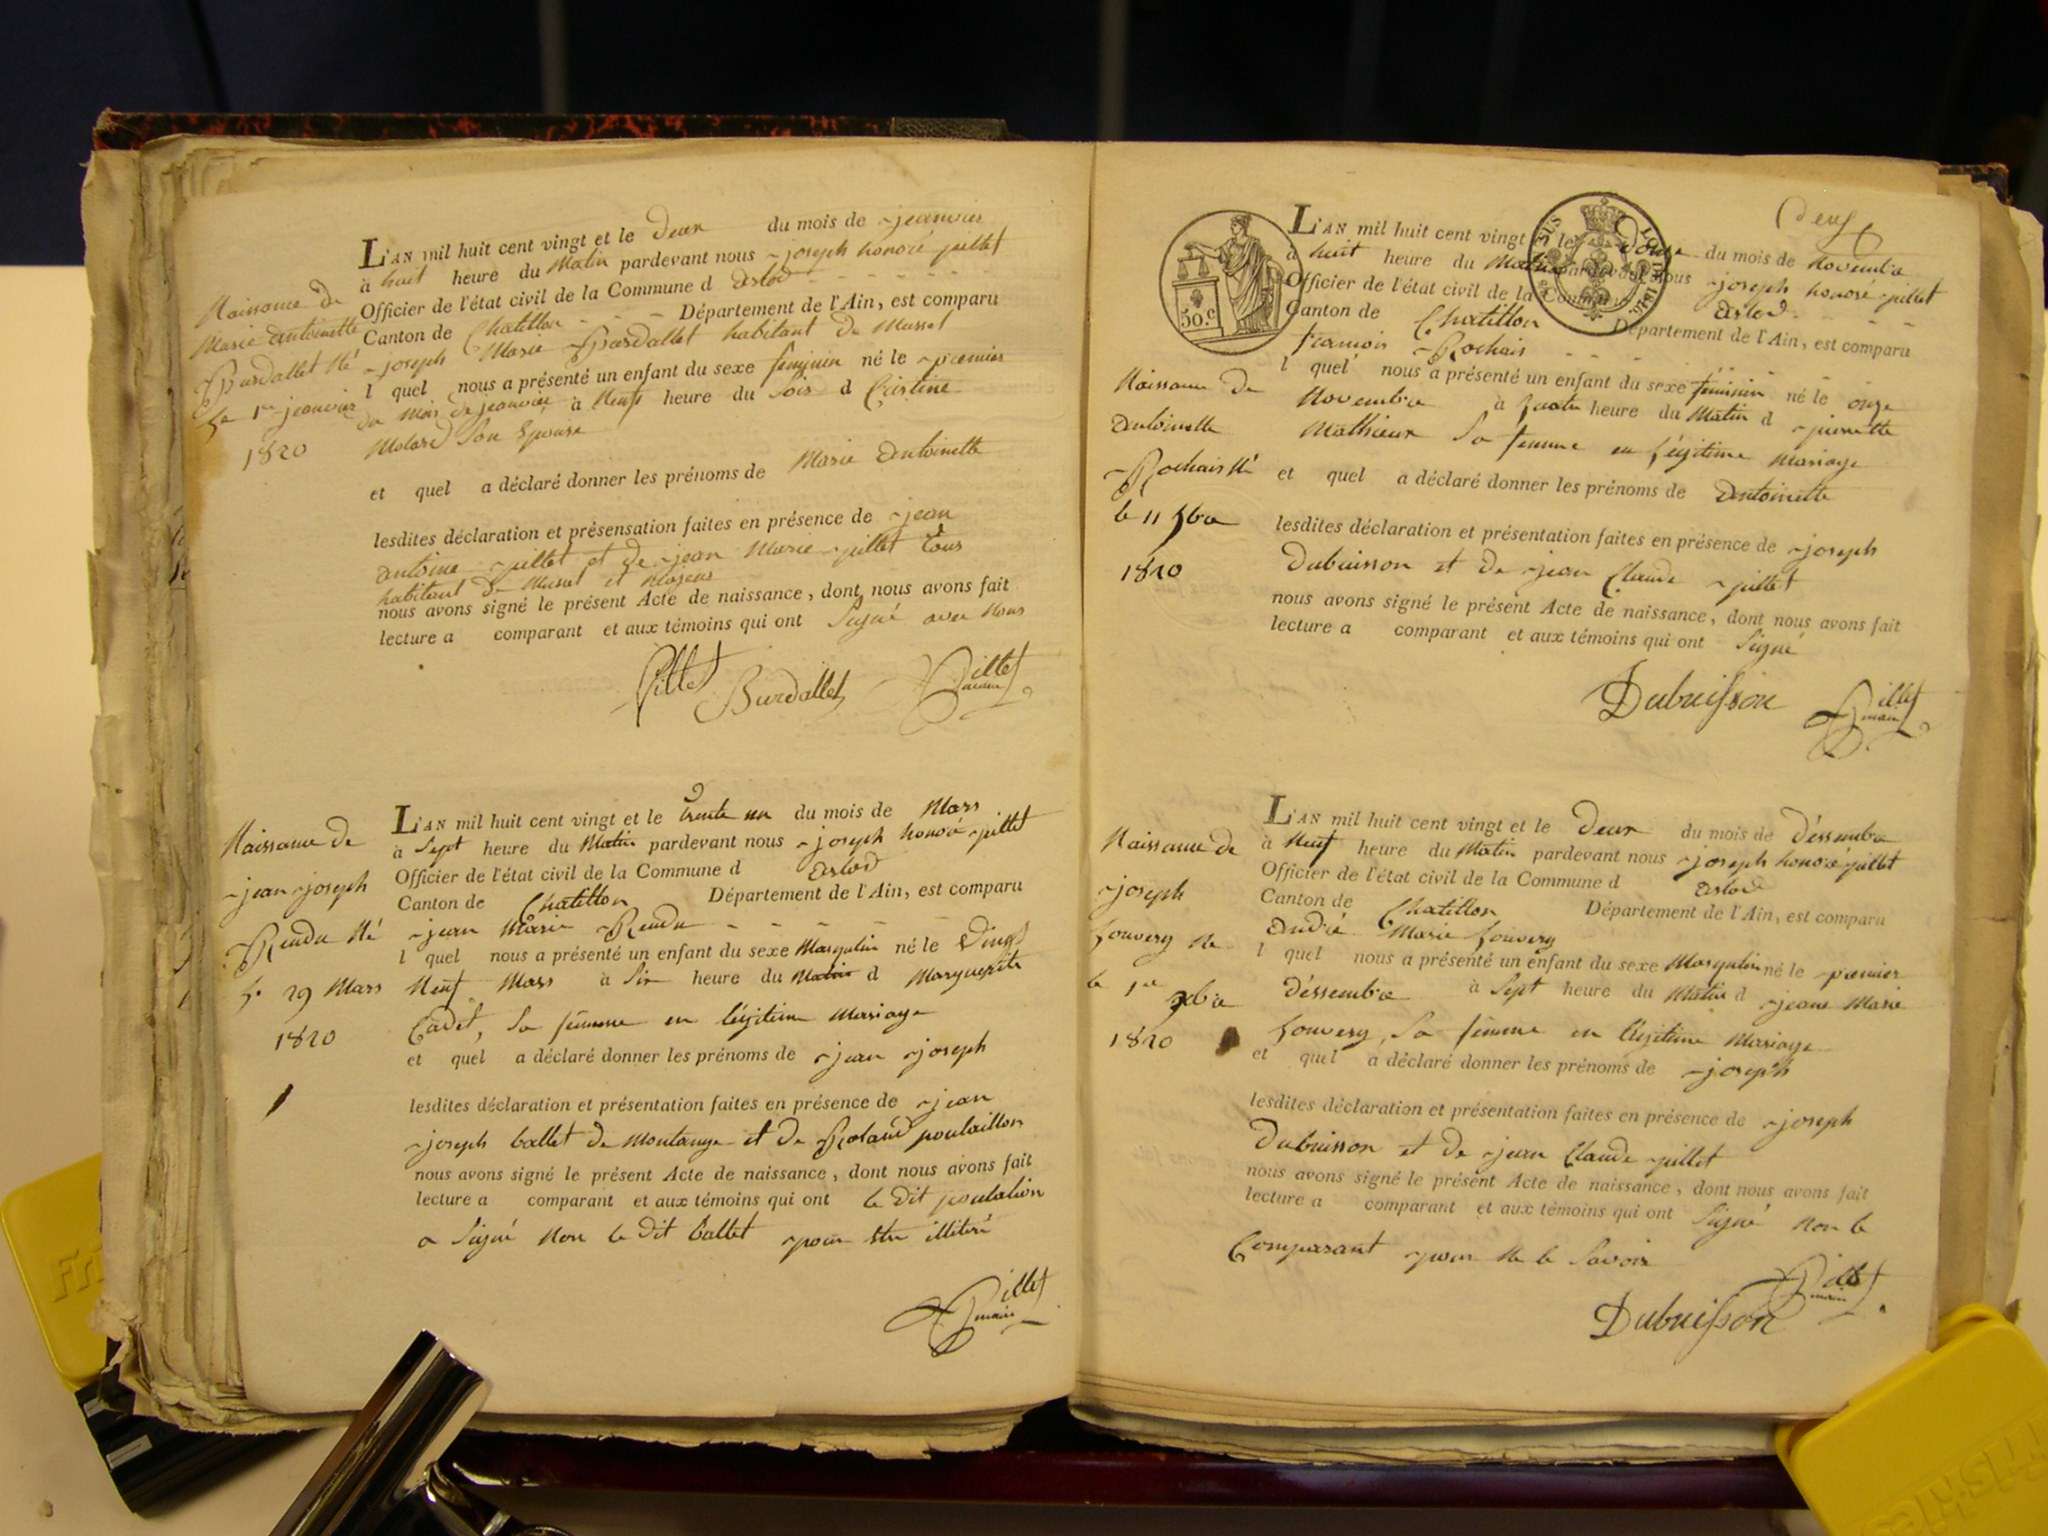 Naissance de
Marie antoinette
Burdallet Né
le 1er jeanvier
1820
L'AN mil huit cent vingt et le Deux du mois de jeanvier
à huit heure du Matin pardevant nous joseph honoré pillet
Officier de l'état civil de la Commune d arlod
Canton de Chatillon Département de l'Ain, est comparu
joseph Marie Burdallet habitant de Mussel
l quel nous a présenté un enfant du sexe feminin né le premier
du Mois de jeanvier à Neuf heure du Soir d Cristine
Molard Son Epouse
et quel a déclaré donner les prénoms de Marie Antoinette
lesdites déclaration et présensation faites en présence de jean
antoine pillet et de jean Marie pillet tous
habitant de Mussel et
nous avons signé le présent Acte de naissance, dont nous avons fait
lecture a comparant et aux témoins qui ont Signé avec Nous
Pillet Burdallet Pillet
maire
Naissance de
jean joseph
Rendu Né
le 29 Mars
1820
L'AN mil huit cent vingt et le trente un du mois de Mars
à Sept heure du Matin pardevant nous joseph honoré pillet
Officier de l'état civil de la Commune d Arlod
Canton de Chatillon Département de l'Ain, est comparu
jean Marie Rendu
l quel nous a présenté un enfant du sexe Masqulin né le Vingt
Neuf Mars à Six heure du Matin d Marguerite
Cadet, Sa femme en légitime Mariage
et quel a déclaré donner les prénoms de jean joseph
lesdites déclaration et présentation faites en présence de jean
joseph ballet de Montange et de Roland poulaillon
nous avons signé le présent Acte de naissance, dont nous avons fait
lecture a comparant et aux témoins qui ont le dit poulalion
a Signé Non le dit ballet pour être illitéré
Pillet
maire
Deux
50.c
L'AN mil huit cent vingt et le Douze du mois de Novembre
à huit heure du Matin pardevant nous joseph honoré pillet
Officier de l'état civil de la Commune d Arlod
Canton de Chatillon Département de l'Ain, est comparu
francois Rochais
l quel nous a présenté un enfant du sexe féminin né le onze
Novembre à quatre heure du Matin d pierrette
Mathieux Sa femme en légitime Mariage
et quel a déclaré donner les prénoms de Antoinette
lesdites déclaration et présentation faites en présence de joseph
Dubuisson et de jean Claude pillet
nous avons signé le présent Acte de naissance, dont nous avons fait
lecture a comparant et aux témoins qui ont Signé
Naissance de
Antoinette
Rochais Né
le 11 9bre
1820
Dubuisson Pillet
maire
Naissance de
joseph
fouvery Né
le 1er
1820
L'AN mil huit cent vingt et le Deux du mois de Déssembre
à Neuf heure du Matin pardevant nous joseph honoré pillet
Officier de l'état civil de la Commune d Arlod
Canton de Chatillon Département de l'Ain, est comparu
André Marie fouvery
l quel nous a présenté un enfant du sexe Masqulin né le premier
Déssembre à Sept heure du Matin d jeane Marie
fouvery, Sa femme en légitime Mariage
et quel a déclaré donner les prénoms de joseph
lesdites déclaration et présentation faites en présence de joseph
Dubuisson et de jean Claude pillet
nous avons signé le présent Acte de naissance, dont nous avons fait
lecture a comparant et aux témoins qui ont Signé Non le
Comparant pour Ne le Savoir
Pillet
maire
Dubuisson